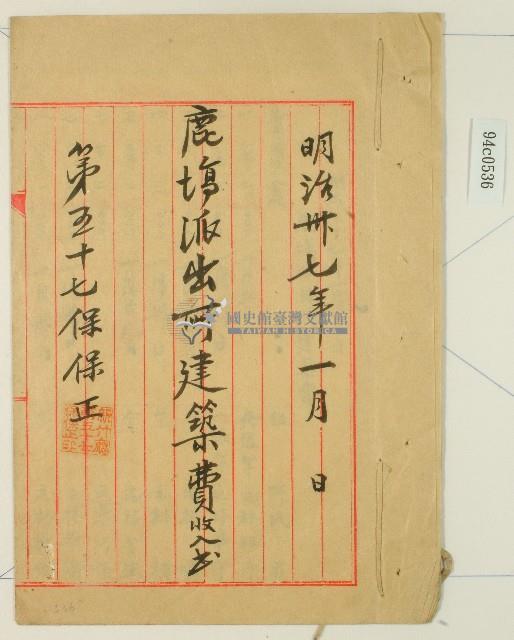 明治卅七年一月　日
鹿塲派出所建築費收入書
第五十七保保正
國史館臺灣文獻館
TAIWAN HISTORICA
94c0536